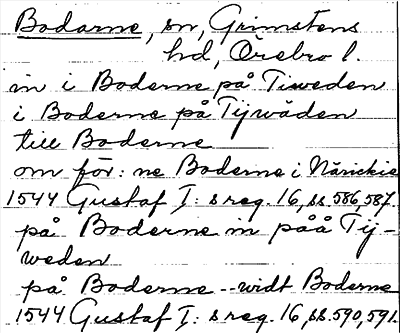 Bodarne, sn, Grimstens
hd, Örebro l.
in i Boderne på Tiweden
i Boderne på Tijwåden
till Boderne
om för: ne Boderne i Närickie
1544 Gustaf I: s reg. 16, ss. 586, 587.
på Boderne in påå Tij-
weden
på Boderne -- widt Boderne
1544 Gustaf I: s reg. 16, ss. 590, 591.